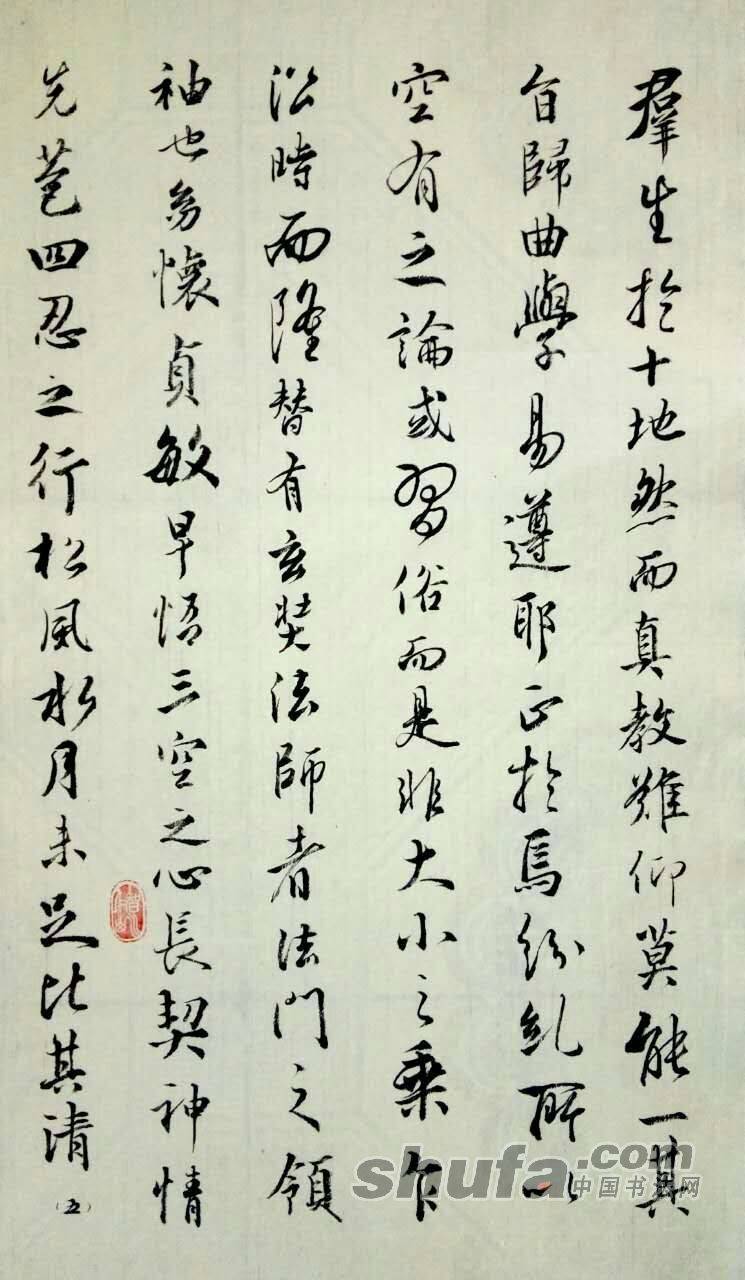 羣生於十地然而真教難仰莫能一其
旨歸曲學易遵耶正於焉紛糺所以
空有之論或習俗而是非大小之乗乍
沿時而隆替有玄奘法師者法門之領
袖也幼懷貞敏早悟三空之心長契神情
先苞四忍之行松風水月未足比其清
（五）
shufa.com
中国书法网